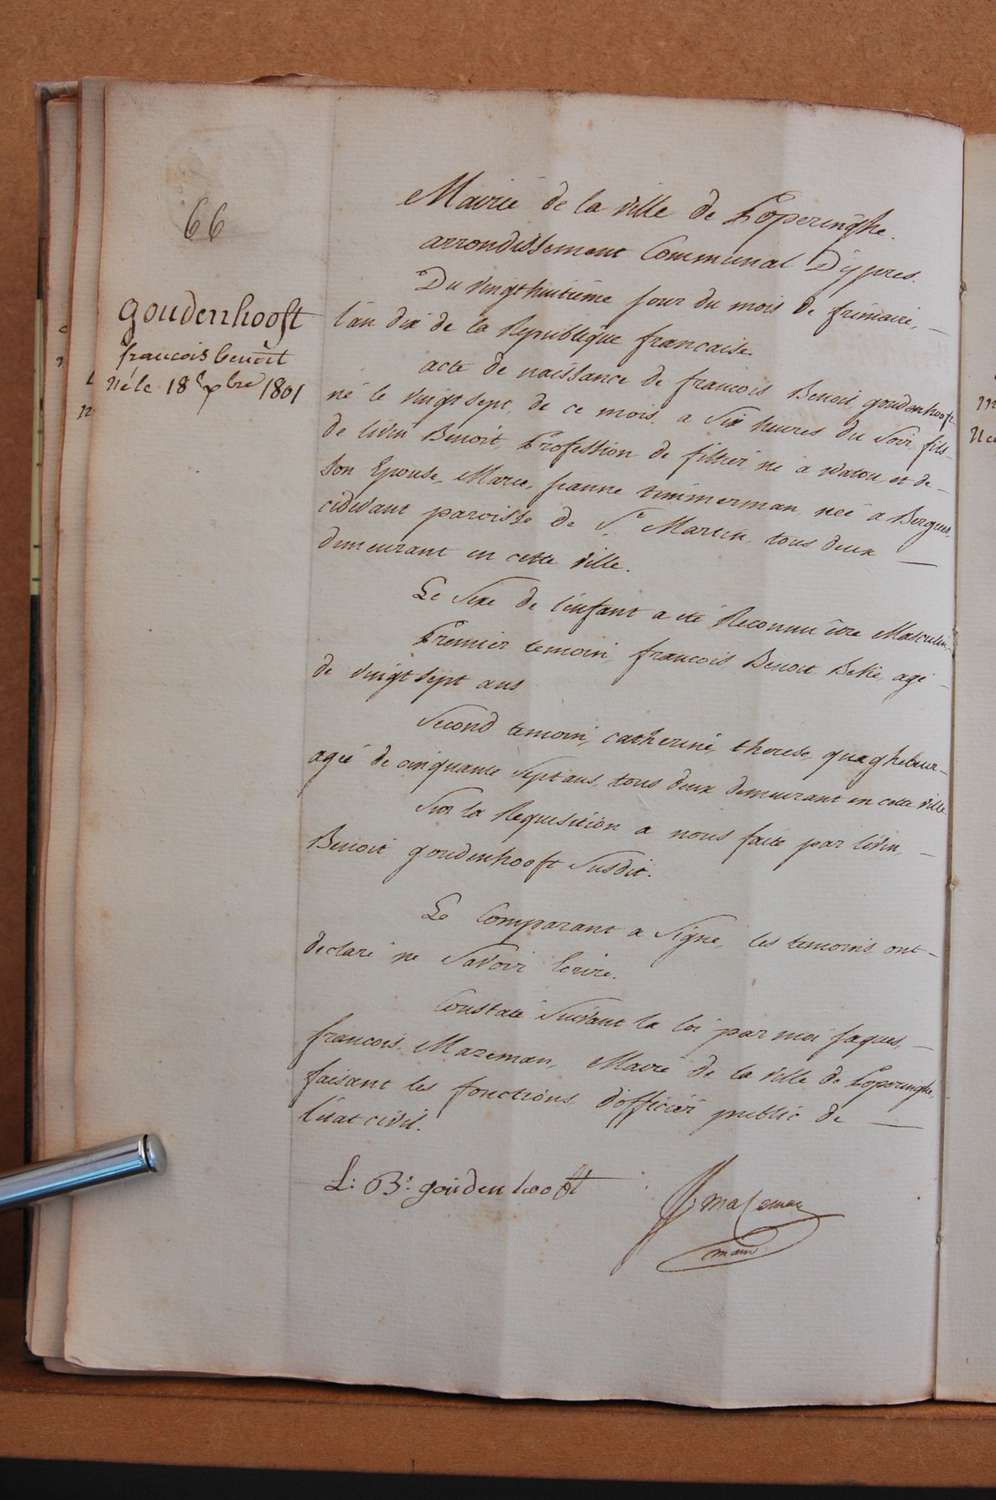 66
goudenhooft
francois benôit
né le 18 xbre 1801
Mairie de la ville de Poperinghe.
arrondissement Communal D'ypres.
Du vingt huitieme jour du mois de frimaire,
l'an dix de la Republique francaise.
acte de naissance de francois Benoit goudenhooft
né le vingt sept de ce mois, a Six heures du Soir, fils
de livin Benoit, Profession de né a watou, et de
Son Epouse, Marie jeanne timmerman neé a Bergues,
cidevant paroisse de St Martin, tous deux
demeurant en cette ville.
Le Sexe de l'enfant a eté Reconnu être Masculin.
Premier temoin, francois Benoit Beke, agé
de vingt sept ans
Second temoin, catherine, therese, quaghebeur
ageé de cinquante Sept ans, tous deux demeurant en cette ville
Sur la Requisition a nous faite par livin,
Benoit goudenhooft Susdit.
Le Comparant a Signé, les temoins ont
declaré ne Savoir Ecrire.
Constaté Suivant la loi par moi jaques,
francois Mazeman, Maire de la ville de Poperinghe,
faisant les fonctions d'officier public de
l'etat civil.
L: B: goudenhooft
mazeman
maire